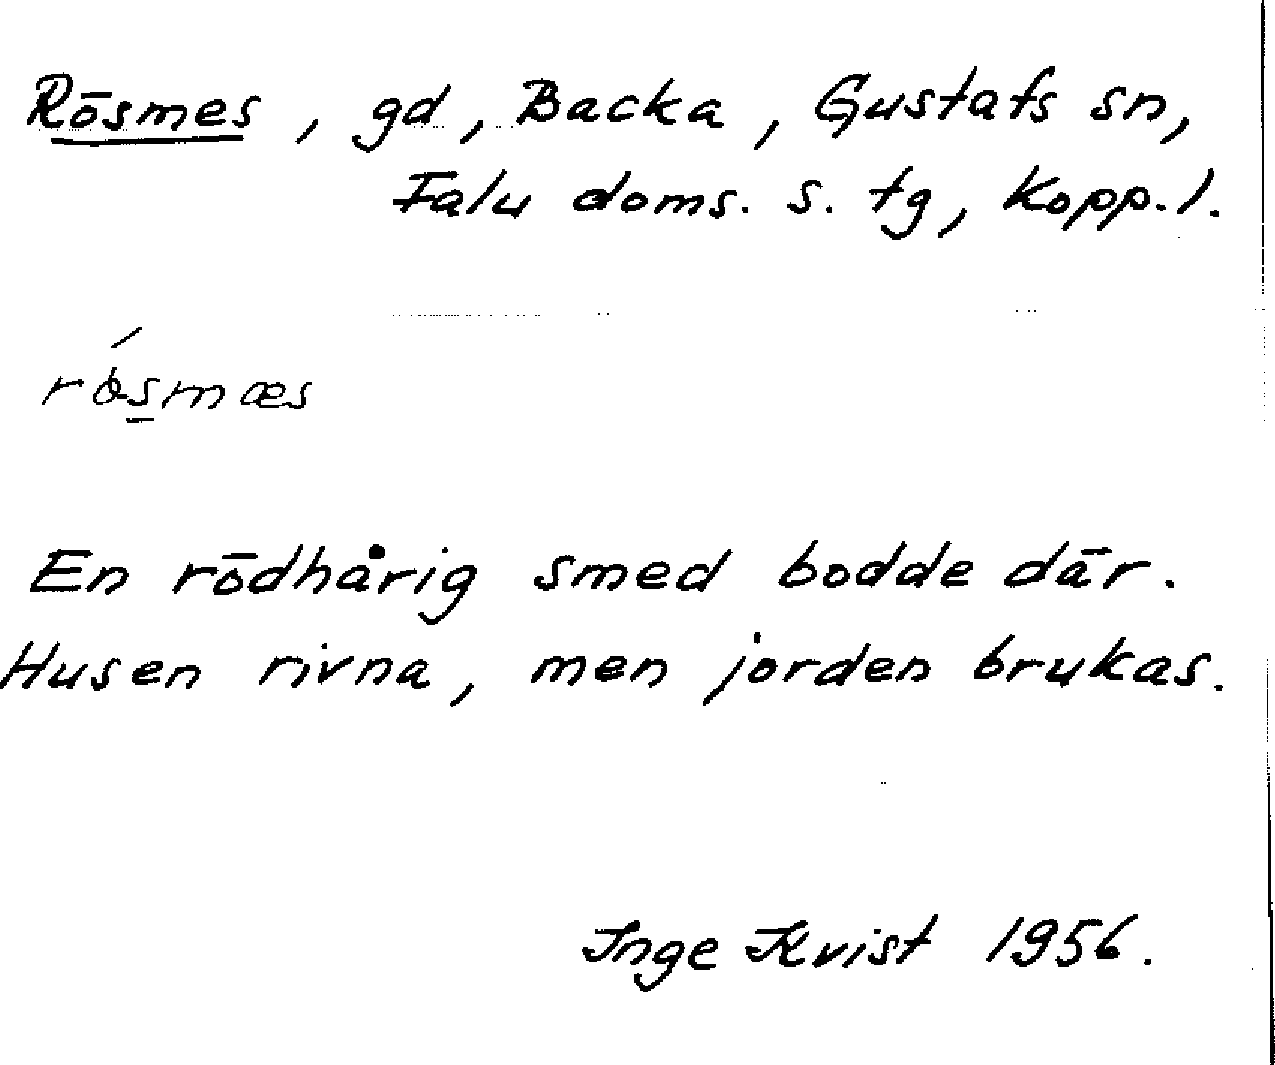 Rösmes, gd, Backa, Gustafs sn,
Falu doms. s. tg, Kopp. l.
rósmæs
En rödhårig smed bodde där.
Husen rivna, men jorden brukas.
Inge Kvist 1956.